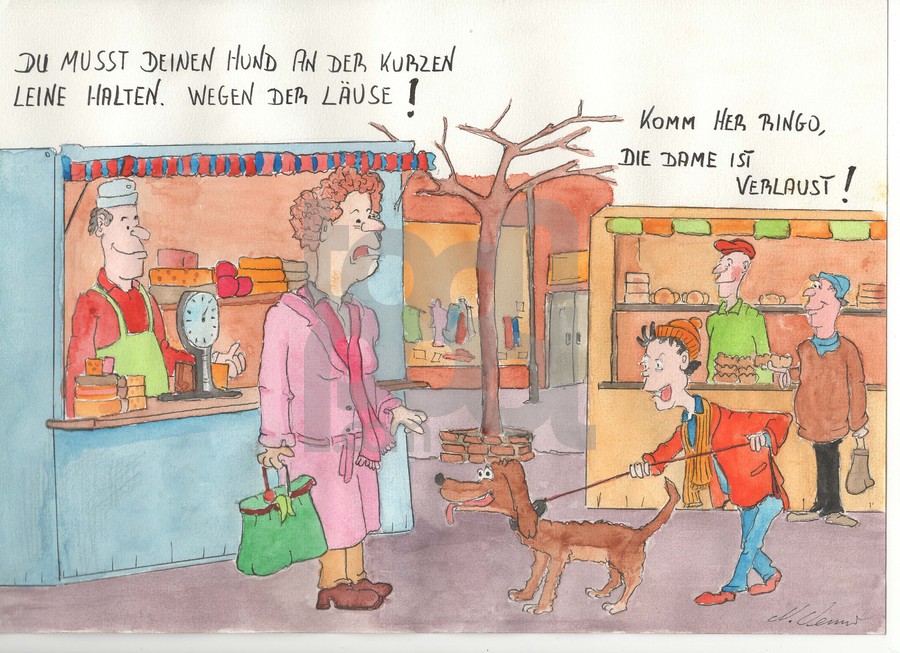 DU MUSST DEINEN HUND AN DER KURZEN
LEINE HALTEN. WEGEN DER LÄUSE!
KOMM HER RINGO,
DIE DAME IST
VERLAUST!